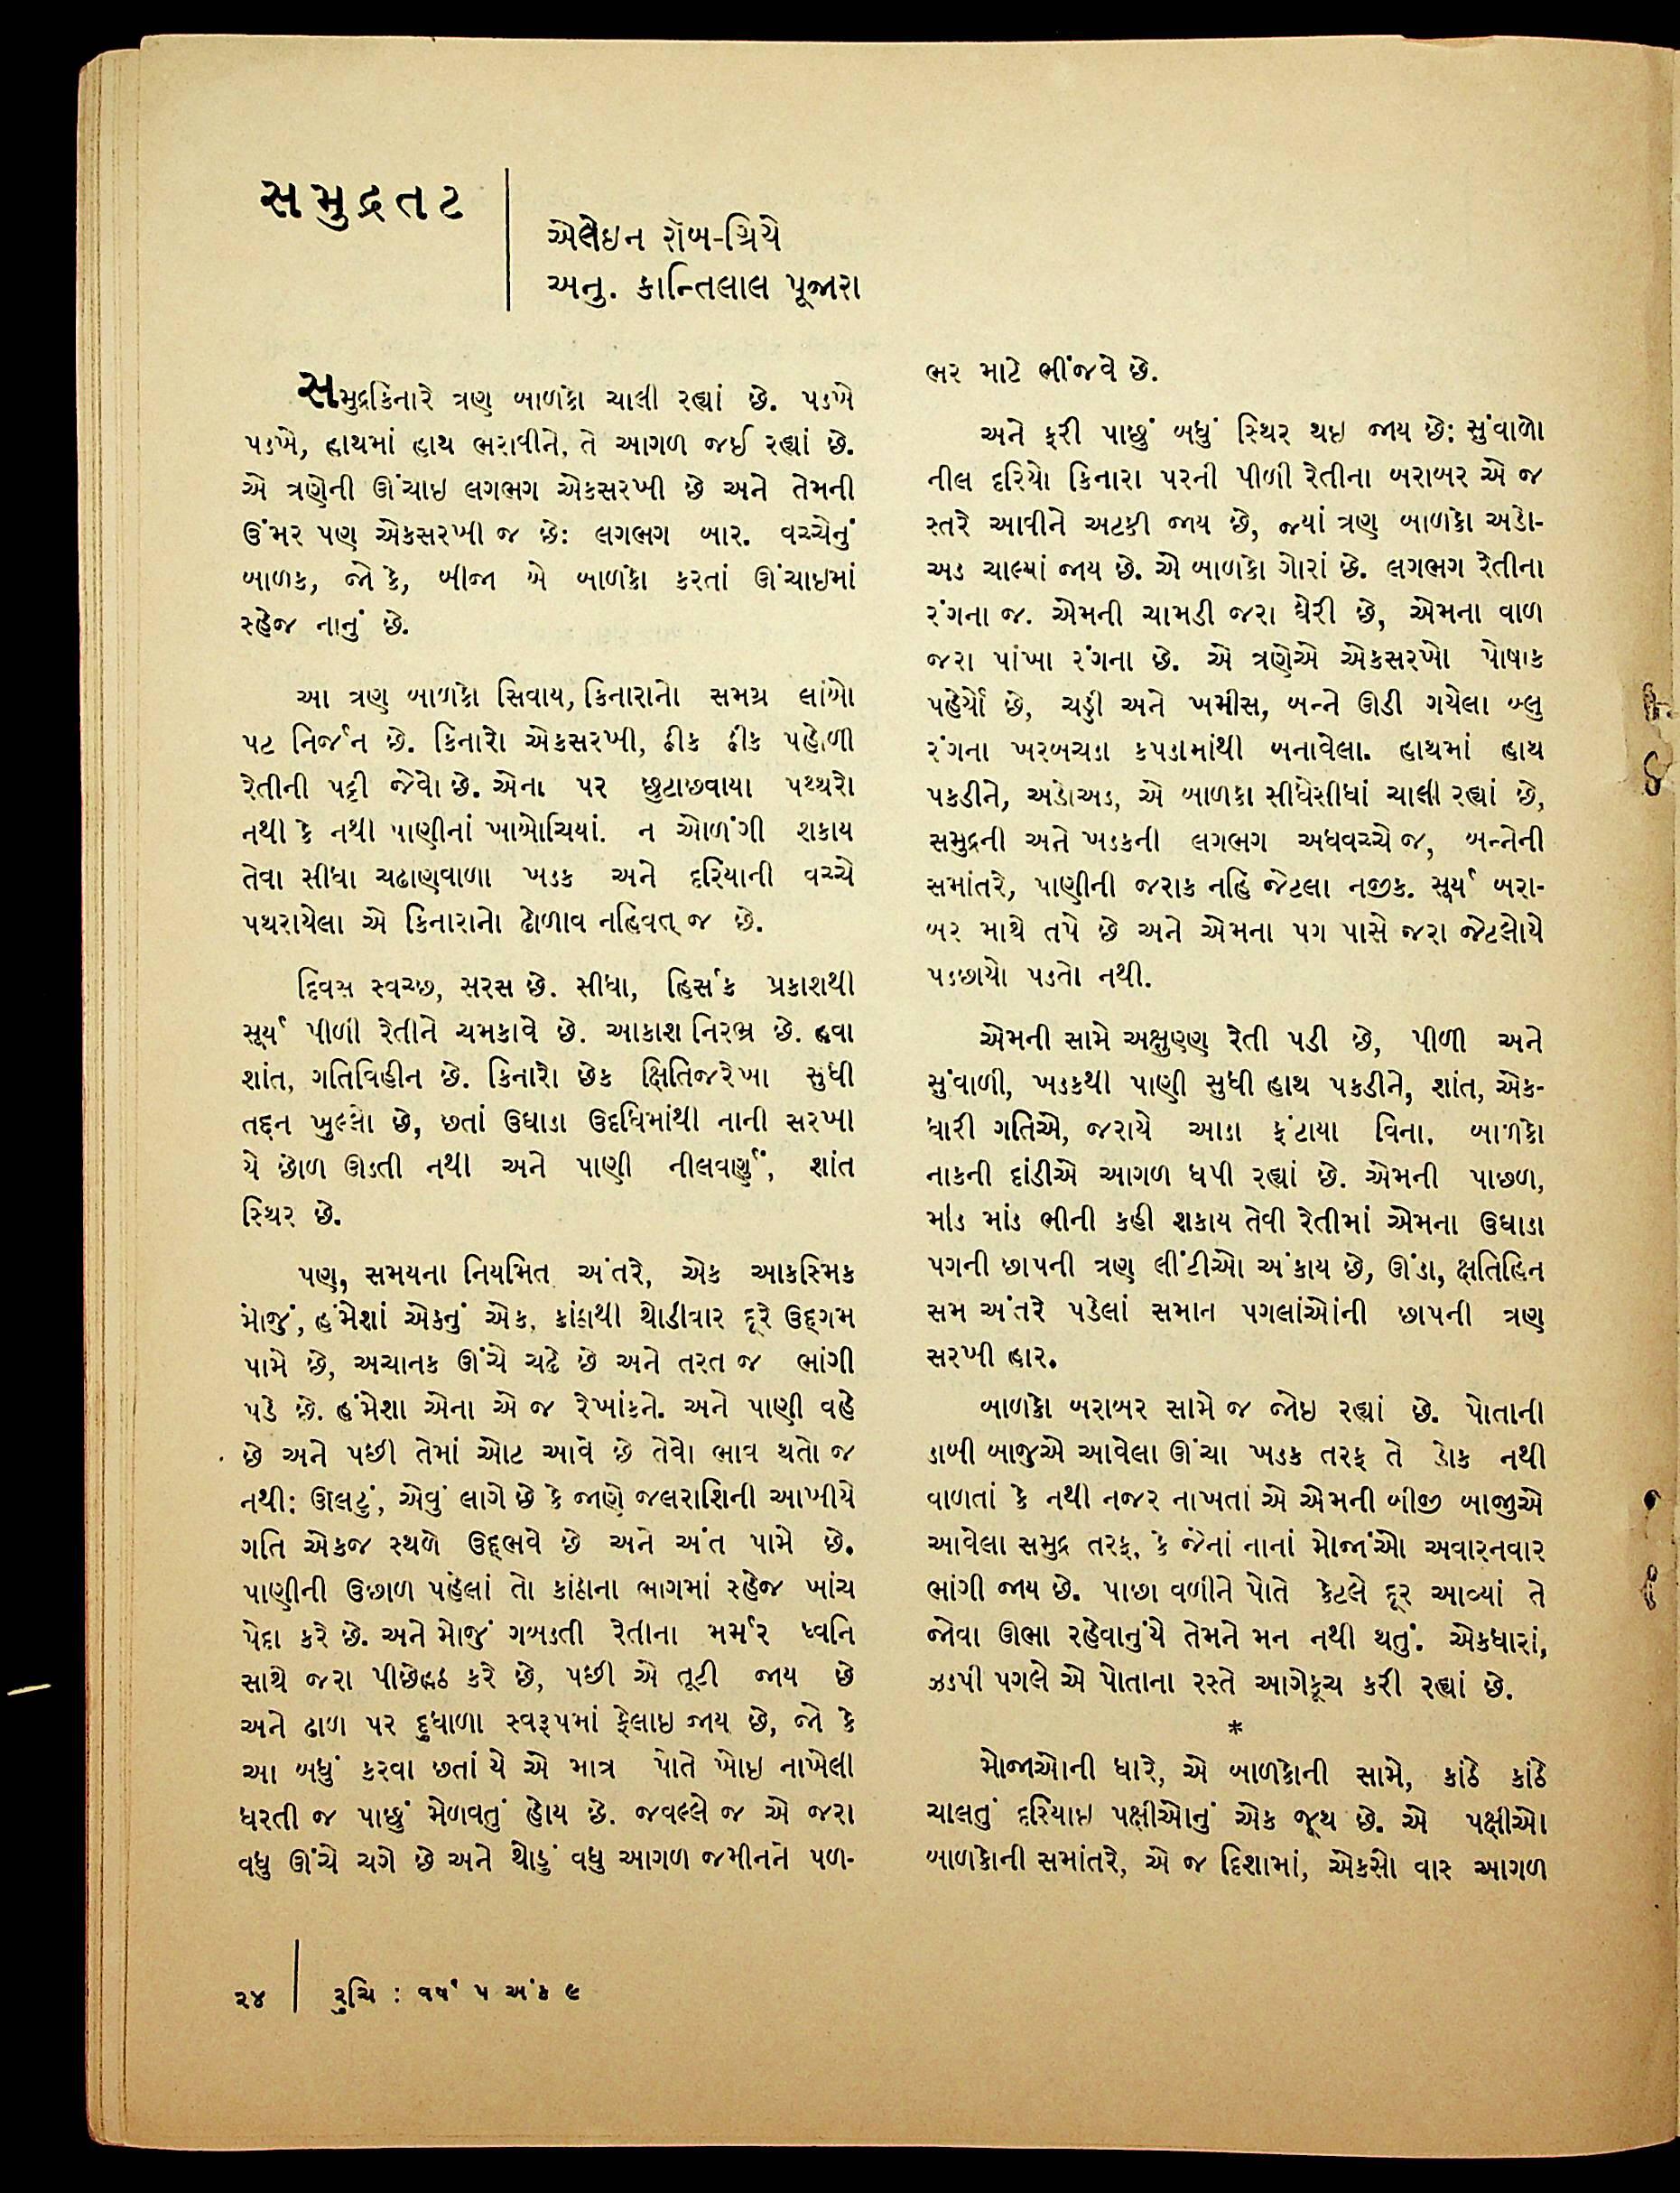 સમુદ્રતટ
એલેઇન રૉબ-ગ્રિયે
અનુ. કાન્તિલાલ પૂજારા
સમુદ્રકિનારે ત્રણ બાળકો ચાલી રહ્યાં છે. પડખે
પડખે, હાથમાં હાથ ભરાવીને, તે આગળ જઈ રહ્યાં છે.
એ ત્રણેની ઊંચાઇ લગભગ એકસરખી છે અને તેમની
ઉંમર પણ એકસરખી જ છે: લગભગ બાર. વચ્ચેનું
બાળક, જો કે, બીજા બે બાળકો કરતાં ઊંચાઇમાં
સ્હેજ નાનું છે.
આ ત્રણ બાળકો સિવાય, કિનારાનો સમગ્ર લાંબો
પટ નિર્જન છે. કિનારો એકસરખી, ઠીક ઠીક પહોળી
રેતીની પટ્ટી જેવો છે. એના પર છુટાછવાયા પથ્થરો
નથી કે નથી પાણીનાં ખાબોચિયાં. ન ઓળંગી શકાય
તેવા સીધા ચઢાણવાળા ખડક અને દરિયાની વચ્ચે
પથરાયેલા એ કિનારાનો ઢોળાવ નહિવત્ જ છે.
દિવસ સ્વચ્છ, સરસ છે. સીધા, હિંસક પ્રકાશથી
સૂર્ય પીળી રેતીને ચમકાવે છે. આકાશ નિરભ્ર છે. હવા
શાંત, ગતિવિહીન છે. કિનારો છેક ક્ષિતિજરેખા સુધી
તદ્દન ખુલ્લો છે, છતાં ઉઘાડા ઉદધિમાંથી નાની સરખા
યે છોળ ઊડતી નથી અને પાણી નીલવર્ણું, શાંત
સ્થિર છે.
પણ, સમયના નિયમિત અંતરે, એક આકસ્મિક
મોજું, હંમેશાં એકનું એક, કાંઠાથી થોડીવાર દૂરે ઉદ્ગમ
પામે છે, અચાનક ઊંચે ચઢે છે અને તરત જ ભાંગી
પડે છે. હંમેશા એના એ જ રેખાંકને. અને પાણી વહે
છે અને પછી તેમાં ઓટ આવે છે તેવો ભાવ થતો જ
નથી: ઊલટું, એવું લાગે છે કે જાણે જલરાશિની આખીયે
ગતિ એકજ સ્થળે ઉદ્ભવે છે અને અંત પામે છે.
પાણીની ઉછાળ પહેલાં તો કાંઠાના ભાગમાં સ્હેજ ખાંચ
પેદા કરે છે. અને મોજું ગબડતી રેતીના મર્મર ધ્વનિ
સાથે જરા પીછેહઠ કરે છે, પછી એ તૂટી જાય છે
અને ઢાળ પર દુધાળા સ્વરૂપમાં ફેલાઇ જાય છે, જો કે
આ બધું કરવા છતાં યે એ માત્ર પોતે ખોઇ નાખેલી
ધરતી જ પાછું મેળવતું હોય છે. જવલ્લે જ એ જરા
વધુ ઊંચે ચગે છે અને થોડું વધુ આગળ જમીનને પળ-
ભર માટે ભીંજવે છે.
અને ફરી પાછું બધું સ્થિર થઇ જાય છે: સુંવાળો
નીલ દરિયો કિનારા પરની પીળી રેતીના બરાબર એ જ
સ્તરે આવીને અટકી જાય છે, જ્યાં ત્રણ બાળકો અડો-
અડ ચાલ્યાં જાય છે. એ બાળકો ગોરાં છે. લગભગ રેતીના
રંગના જ. એમની ચામડી જરા ઘેરી છે, એમના વાળ
જરા પાંખા રંગના છે. એ ત્રણેએ એકસરખો પોષાક
પહેર્યો છે, ચડ્ડી અને ખમીસ, બન્ને ઊડી ગયેલા બ્લુ
રંગના ખરબચડા કપડામાંથી બનાવેલા. હાથમાં હાથ
પકડીને, અડોઅડ, એ બાળકો સીધેસીધાં ચાલી રહ્યાં છે,
સમુદ્રની અને ખડકની લગભગ અધવચ્ચે જ, બન્નેની
સમાંતરે, પાણીની જરાક નહિ જેટલા નજીક. સૂર્ય બરા-
બર માથે તપે છે અને એમના પગ પાસે જરા જેટલોયે
પડછાયો પડતો નથી.
એમની સામે અક્ષુણ્ણ રેતી પડી છે, પીળી અને
સુંવાળી, ખડકથી પાણી સુધી હાથ પકડીને, શાંત, એક-
ધારી ગતિએ, જરાયે આડા ફંટાયા વિના, બાળકો
નાકની દાંડીએ આગળ ધપી રહ્યાં છે. એમની પાછળ,
માંડ માંડ ભીની કહી શકાય તેવી રેતીમાં એમના ઉઘાડા
પગની છાપની ત્રણ લીંટીઓ અંકાય છે, ઊંડા, ક્ષતિહિન
સમ અંતરે પડેલાં સમાન પગલાંઓંની છાપની ત્રણ
સરખી હાર.
બાળકો બરાબર સામે જ જોઇ રહ્યાં છે. પોતાની
ડાબી બાજુએ આવેલા ઊંચા ખડક તરફ તે ડોક નથી
વાળતાં કે નથી નજર નાખતાં એ એમની બીજી બાજીએ
આવેલા સમુદ્ર તરફ, કે જેનાં નાનાં મોજાંઓ અવારનવાર
ભાંગી જાય છે. પાછા વળીને પોતે કેટલે દૂર આવ્યાં તે
જોવા ઊભા રહેવાનુંયે તેમને મન નથી થતું. એકધારાં,
ઝડપી પગલે એ પોતાના રસ્તે આગેકૂચ કરી રહ્યાં છે.
*
મોજાઓની ધારે, એ બાળકોની સામે, કાંઠે કાંઠે
ચાલતું દરિયાઇ પક્ષીઓનું એક જૂથ છે. એ પક્ષીઓ
બાળકોની સમાંતરે, એ જ દિશામાં, એકસો વાર આગળ
૨૪ | રુચિ : વર્ષ ૫ અંક ૯